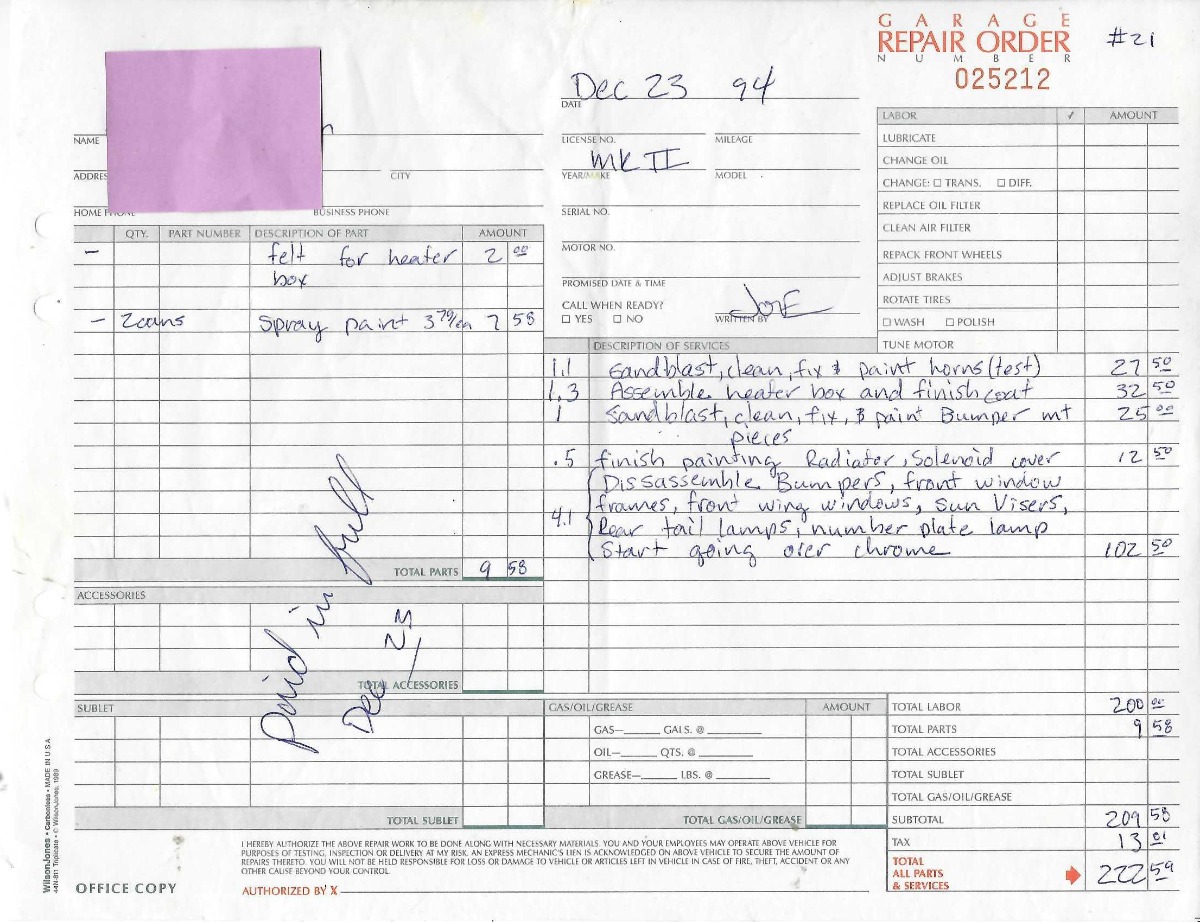 GARAGE
REPAIR ORDER #21
NUMBER
025212
Dec 23 94
DATE
NAME
LICENSE NO. MILEAGE
MK II
ADDRES CITY
YEAR/MAKE MODEL
HOME PHONE BUSINESS PHONE
SERIAL NO.
MOTOR NO.
PROMISED DATE & TIME
CALL WHEN READY?
☐ YES ☐ NO WRITTEN BY
LABOR ✓ AMOUNT
LUBRICATE
CHANGE OIL
CHANGE: ☐ TRANS. ☐ DIFF.
REPLACE OIL FILTER
CLEAN AIR FILTER
REPACK FRONT WHEELS
ADJUST BRAKES
ROTATE TIRES
☐ WASH ☐ POLISH
TUNE MOTOR
QTY. PART NUMBER DESCRIPTION OF PART AMOUNT
– felt for heater 2 00
box
– 2cans spray paint 3 79/ea 7 58
TOTAL PARTS 9 58
DESCRIPTION OF SERVICES
1.1 Sandblast, clean, fix & paint horns (test) 27 50
1.3 Assemble heater box and finish coat 32 50
1 Sandblast, clean, fix, & paint Bumper mt 25 00
pieces
.5 finish painting Radiator, Solenoid cover 12 50
Dissassemble Bumpers, front window
frames, front wing windows, Sun Visers,
4.1 Rear tail lamps, number plate lamp
Start going over chrome 102 50
Paid in full
Dec 23
ACCESSORIES
TOTAL ACCESSORIES
SUBLET
TOTAL SUBLET
GAS/OIL/GREASE AMOUNT
GAS—______ GALS. @ ________
OIL—______ QTS. @ ________
GREASE—______ LBS. @ ________
TOTAL GAS/OIL/GREASE
TOTAL LABOR 200 00
TOTAL PARTS 9 58
TOTAL ACCESSORIES
TOTAL SUBLET
TOTAL GAS/OIL/GREASE
SUBTOTAL 209 58
TAX 13 01
TOTAL
ALL PARTS
& SERVICES 222 59
I HEREBY AUTHORIZE THE ABOVE REPAIR WORK TO BE DONE ALONG WITH NECESSARY MATERIALS. YOU AND YOUR EMPLOYEES MAY OPERATE ABOVE VEHICLE FOR
PURPOSES OF TESTING, INSPECTION OR DELIVERY AT MY RISK. AN EXPRESS MECHANIC'S LIEN IS ACKNOWLEDGED ON ABOVE VEHICLE TO SECURE THE AMOUNT OF
REPAIRS THERETO. YOU WILL NOT BE HELD RESPONSIBLE FOR LOSS OR DAMAGE TO VEHICLE OR ARTICLES LEFT IN VEHICLE IN CASE OF FIRE, THEFT, ACCIDENT OR ANY
OTHER CAUSE BEYOND YOUR CONTROL.
OFFICE COPY AUTHORIZED BY X
WilsonJones • Carbonless • MADE IN U.S.A.
Triplicate • © WilsonJones, 1989